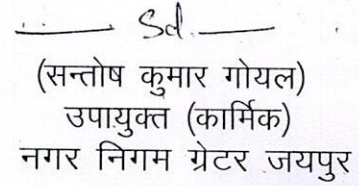 Sd.
(सन्तोष कुमार गोयल)
उपायुक्त (कार्मिक)
नगर निगम ग्रेटर जयपुर